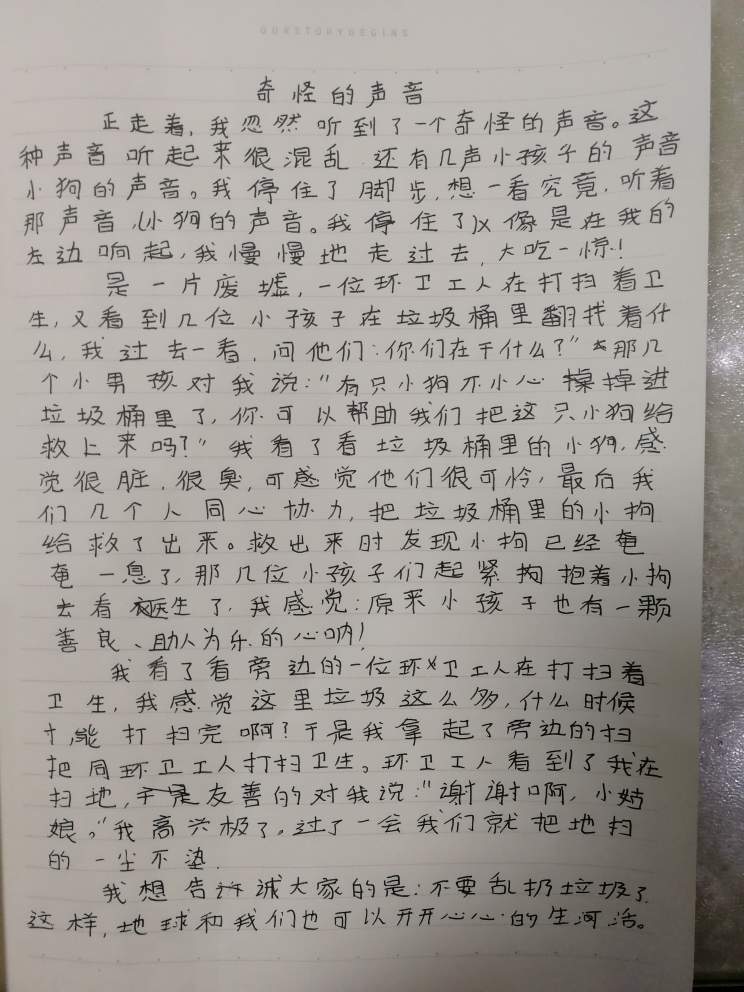 OURSTORYBEGINS
奇怪的声音
正走着，我忽然听到了一个奇怪的声音。这
种声音听起来很混乱 还有几声小孩子的声音
小狗的声音。我停住了脚步，想一看究竟，听着
那声音，小狗的声音。我停住了 像是在我的
左边响起，我慢慢地走过去，大吃一惊！
是一片废墟，一位环卫工人在打扫着卫
生，又看到几位小孩子在垃圾桶里翻找着什
么，我过去一看，问他们：你们在干什么？”那几
个小男孩对我说：“有只小狗不小心掉进
垃圾桶里了，你可以帮助我们把这只小狗给
救上来吗？”我看了看垃圾桶里的小狗，感
觉很脏，很臭，可感觉他们很可怜，最后我
们几个人同心协力，把垃圾桶里的小狗
给救了出来。救出来时发现小狗已经奄
奄一息了，那几位小孩子们起紧抱着小狗
去看医生了，我感觉：原来小孩子也有一颗
善良、助人为乐的心呐！
我看了看旁边的一位环卫工人在打扫着
卫生，我感觉这里垃圾这么多，什么时候
才能打扫完啊？于是我拿起了旁边的扫
把同环卫工人打扫卫生。环卫工人看到了我在
扫地，于是友善的对我说：“谢谢啊，小姑
娘。”我高兴极了。过了一会我们就把地扫
的一尘不染.
我想告诫大家的是：不要乱扔垃圾了
这样，地球和我们也可以开开心心的生活。